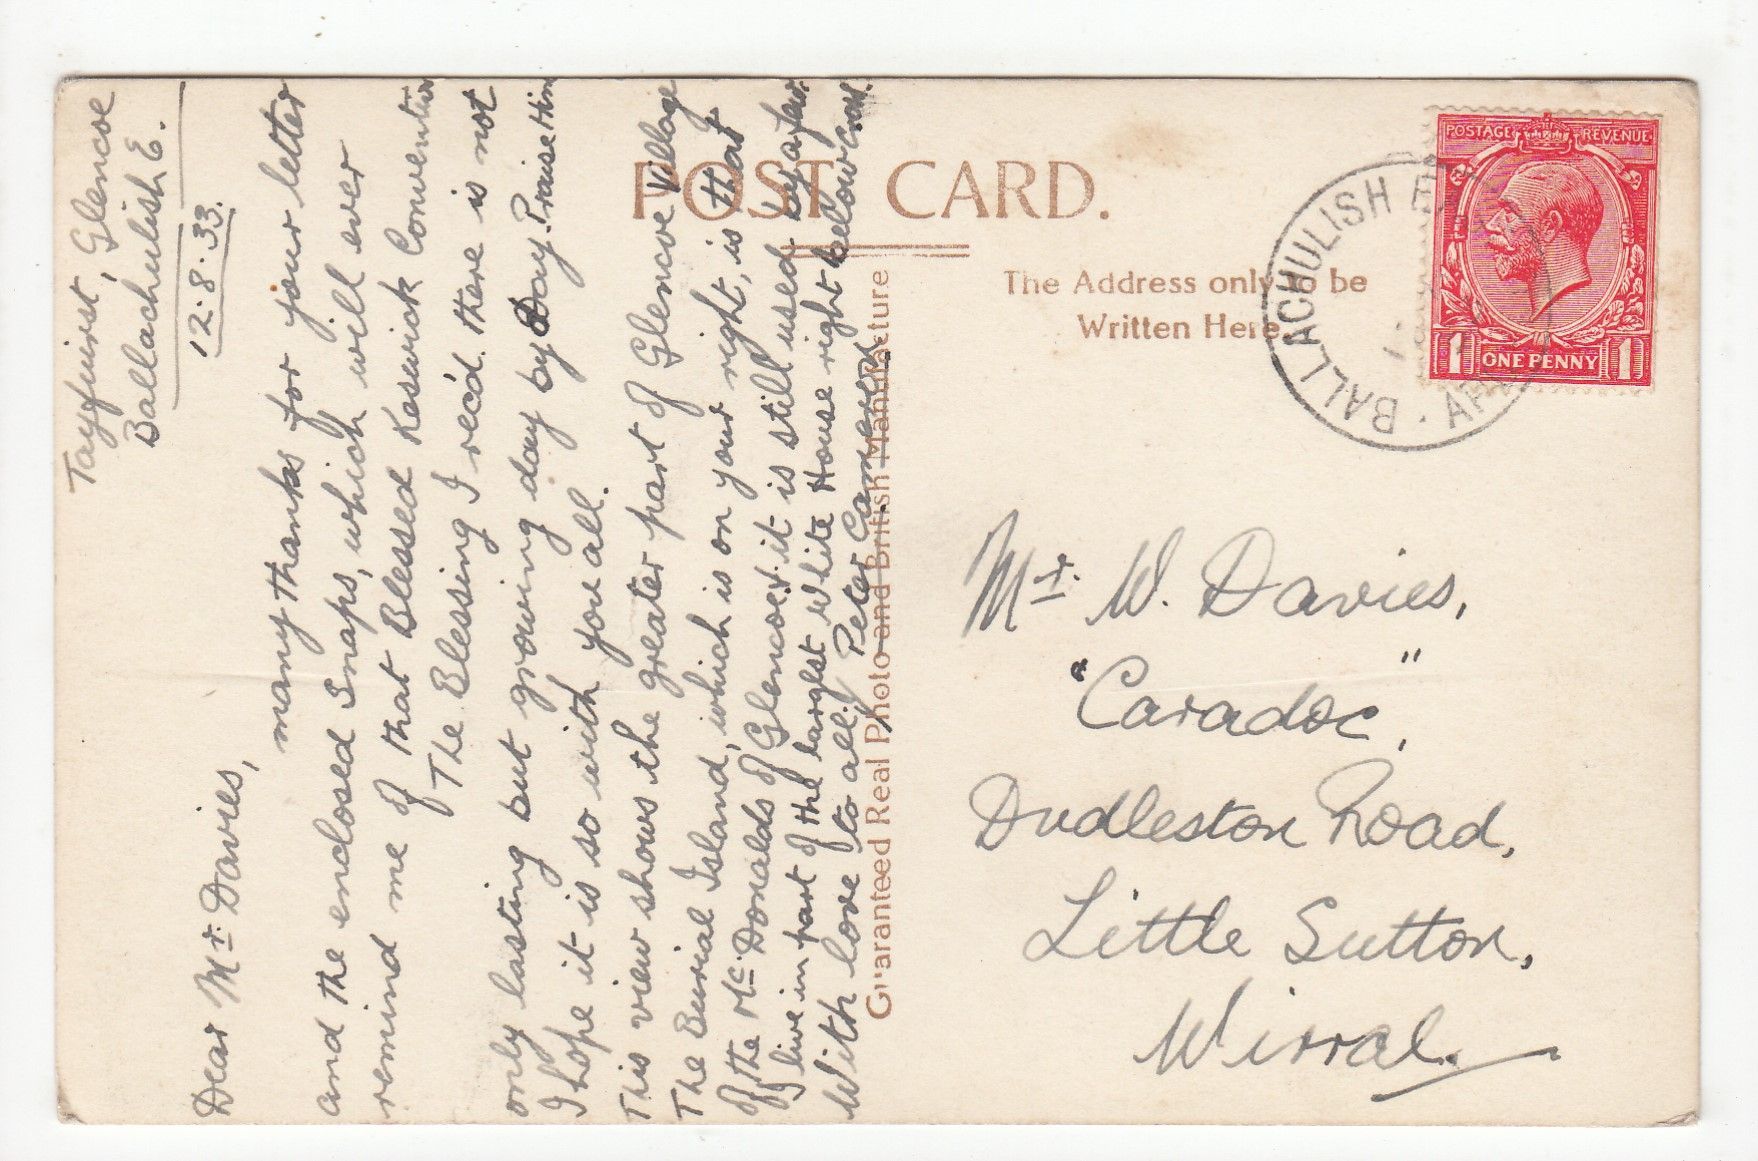 Tayfuirst, Glencoe
Ballachulish E.
12.8.33.
Dear Mr. Davies,
many thanks for your letter
and the enclosed Snaps, which will ever
remind me of that Blessed Keswick Convention
The Blessing I rec'd. there is not
only lasting but growing day by Day. Praise Him
I hope it is so with you all.
This view shows the greater part of Glencoe Village
The Burial Island, which is on your right, is that
of the McDonalds of Glencoe, it is still used by a few.
I live in part of the largest white House right below Cross.
With love to all, Peter Cameron
POST CARD.
The Address only to be
Written Here.
Guaranteed Real Photo and British Manufacture
POSTAGE REVENUE
1 ONE PENNY 1
BALLACHULISH
Mr. W. Davies,
"Caradoc",
Dudleston Road,
Little Sutton,
Wirral.